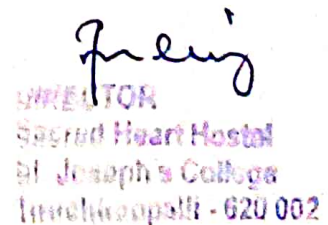 DIRECTOR
Sacred Heart Hostel
St Joseph's College
Tiruchirapalli - 620 002